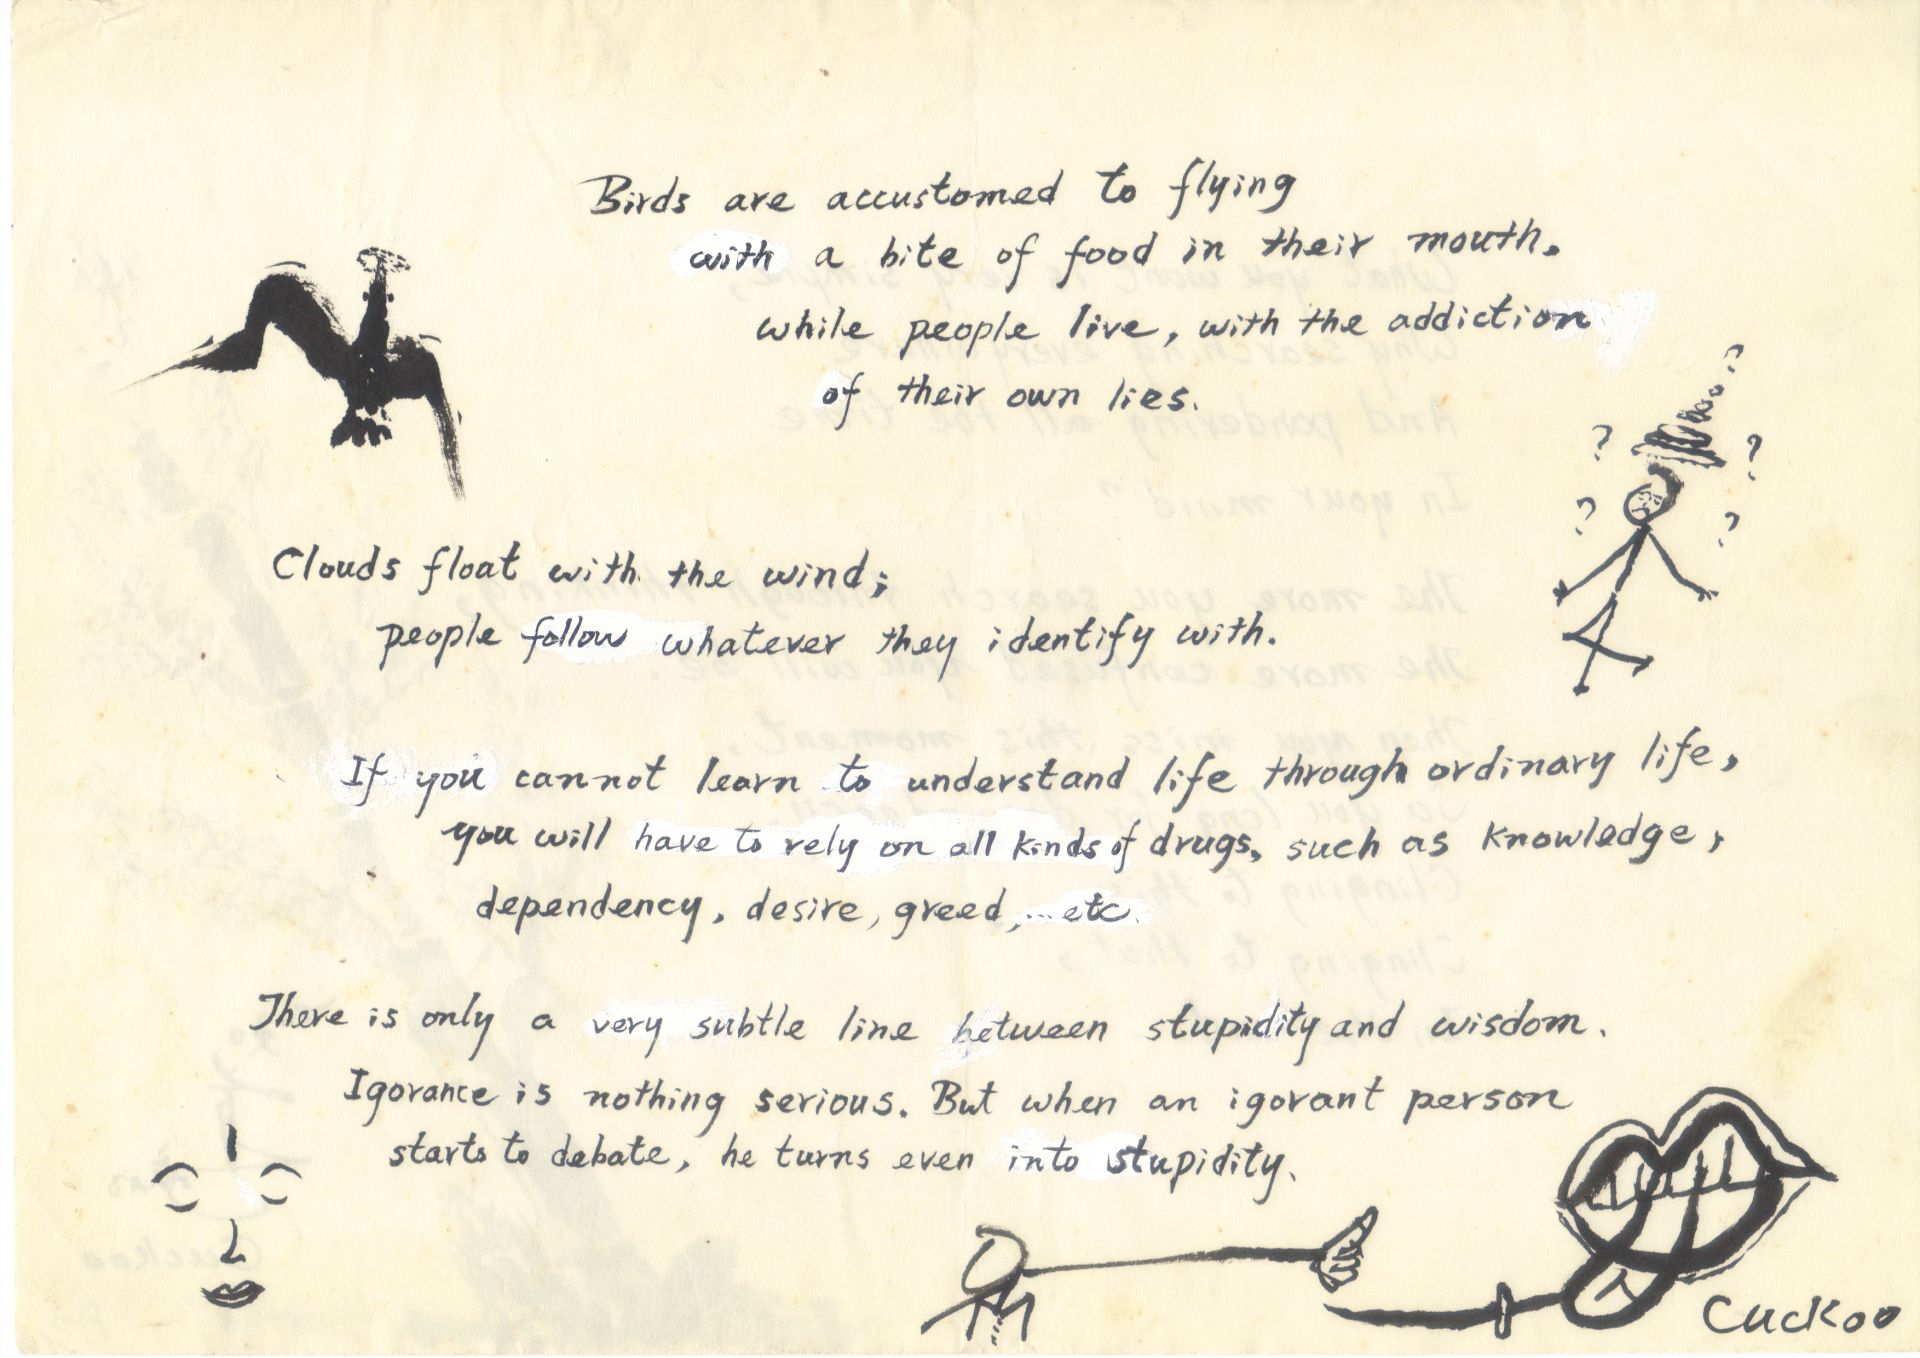 Birds are accustomed to flying
with a bite of food in their mouth.
while people live, with the addiction
of their own lies.
? ? ? ? ?
Clouds float with the wind;
people follow whatever they identify with.
If you cannot learn to understand life through ordinary life,
you will have to rely on all kinds of drugs, such as knowledge,
dependency, desire, greed, ...etc.
There is only a very subtle line between stupidity and wisdom.
Igorance is nothing serious. But when an igorant person
starts to debate, he turns even into stupidity.
Cuckoo